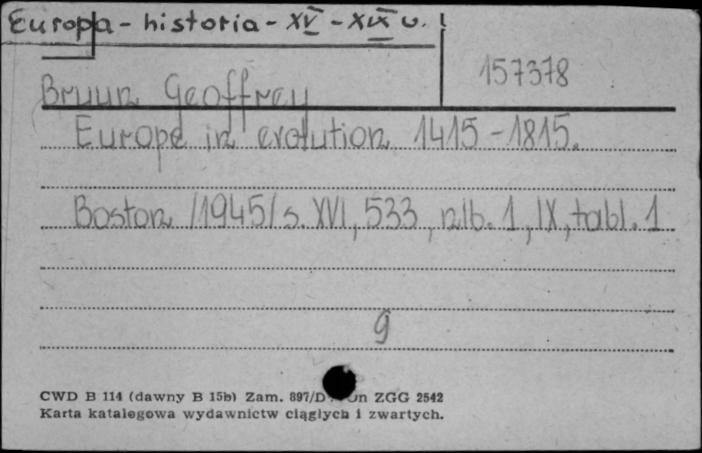 Europa - historia - XV - XIX w.
157378
Bruun Geoffrey
Europe in evolution 1415-1815.
Boston /1945/ s. XVI, 533, nlb. 1, IX, tabl. 1
g
CWD B 114 (dawny B 15b) Zam. 897/D ZGG 2542
Karta katalogowa wydawnictw ciągłych i zwartych.